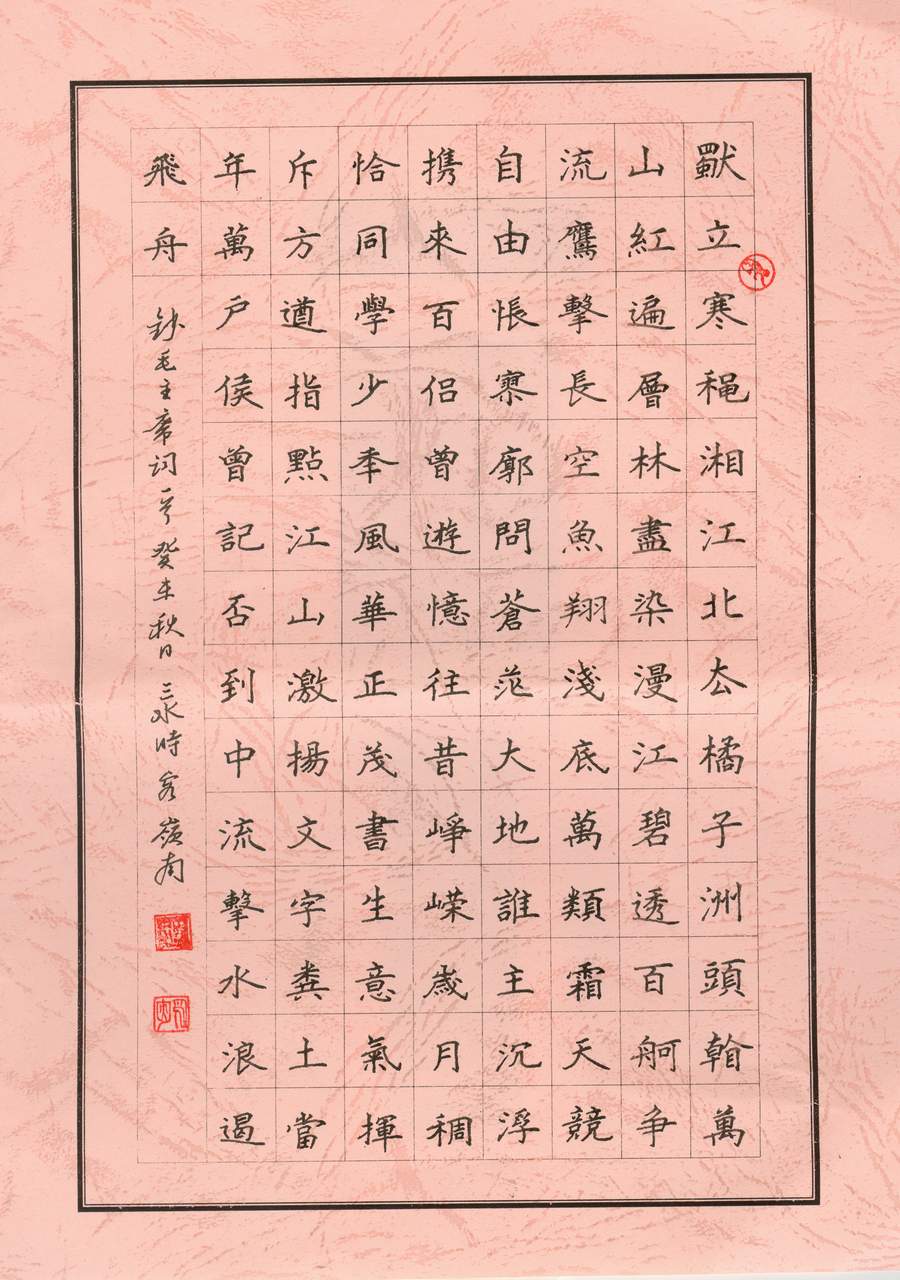 獨立寒穐湘江北厺橘子洲頭看萬
山紅遍層林盡染漫江碧透百舸争
流鷹擊長空魚翔淺底萬類霜天競
自由悵寥廓問蒼茫大地誰主沉浮
携來百侣曾遊憶往昔崢嶸歲月稠
恰同學少秊風華正茂書生意氣揮
斥方遒指點江山激揚文字糞土當
年萬户侯曾記否到中流擊水浪遏
飛舟 鈔毛主席詞一首 癸未秋日 三水時客嶺南